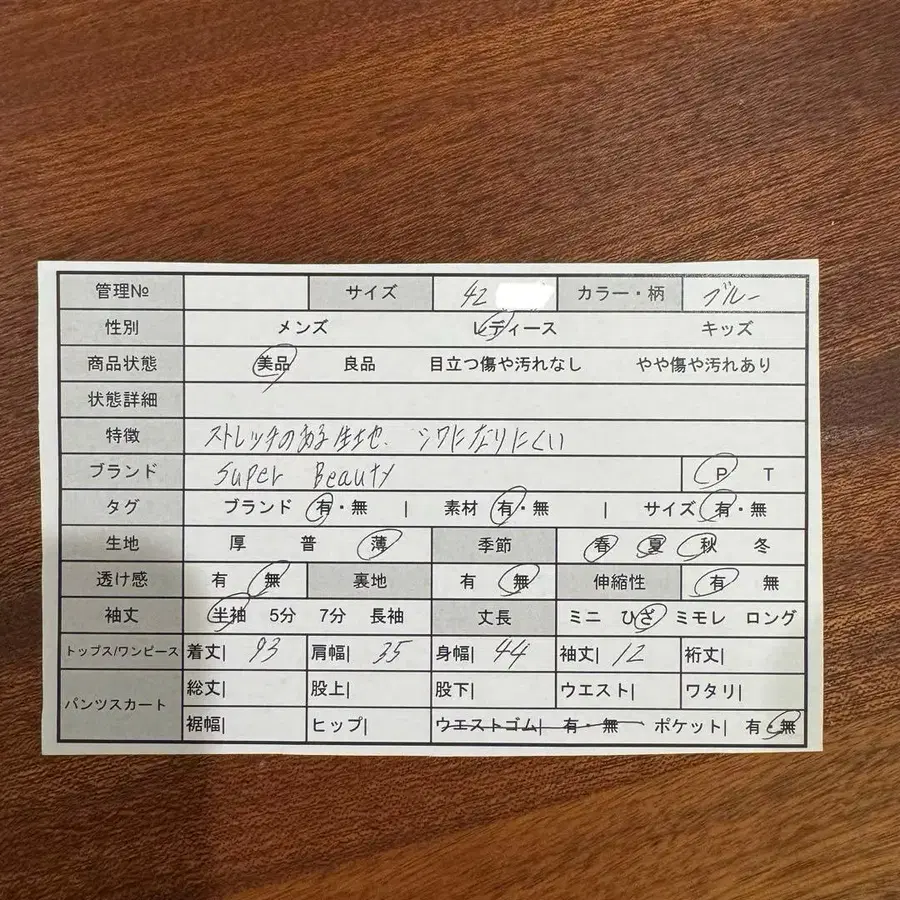 管理№ サイズ 42 カラー・柄 ブルー
性別 メンズ レディース キッズ
商品状態 美品 良品 目立つ傷や汚れなし やや傷や汚れあり
状態詳細
特徴 ストレッチのある生地、シワになりにくい
ブランド Super Beauty P T
タグ ブランド 有・無 | 素材 有・無 | サイズ 有・無
生地 厚 普 薄 季節 春 夏 秋 冬
透け感 有 無 裏地 有 無 伸縮性 有 無
袖丈 半袖 5分 7分 長袖 丈長 ミニ ひざ ミモレ ロング
トップス/ワンピース 着丈| 93 肩幅| 35 身幅| 44 袖丈| 12 裄丈|
パンツスカート 総丈| 股上| 股下| ウエスト| ワタリ|
裾幅| ヒップ| ウエストゴム| 有・無 ポケット| 有・無